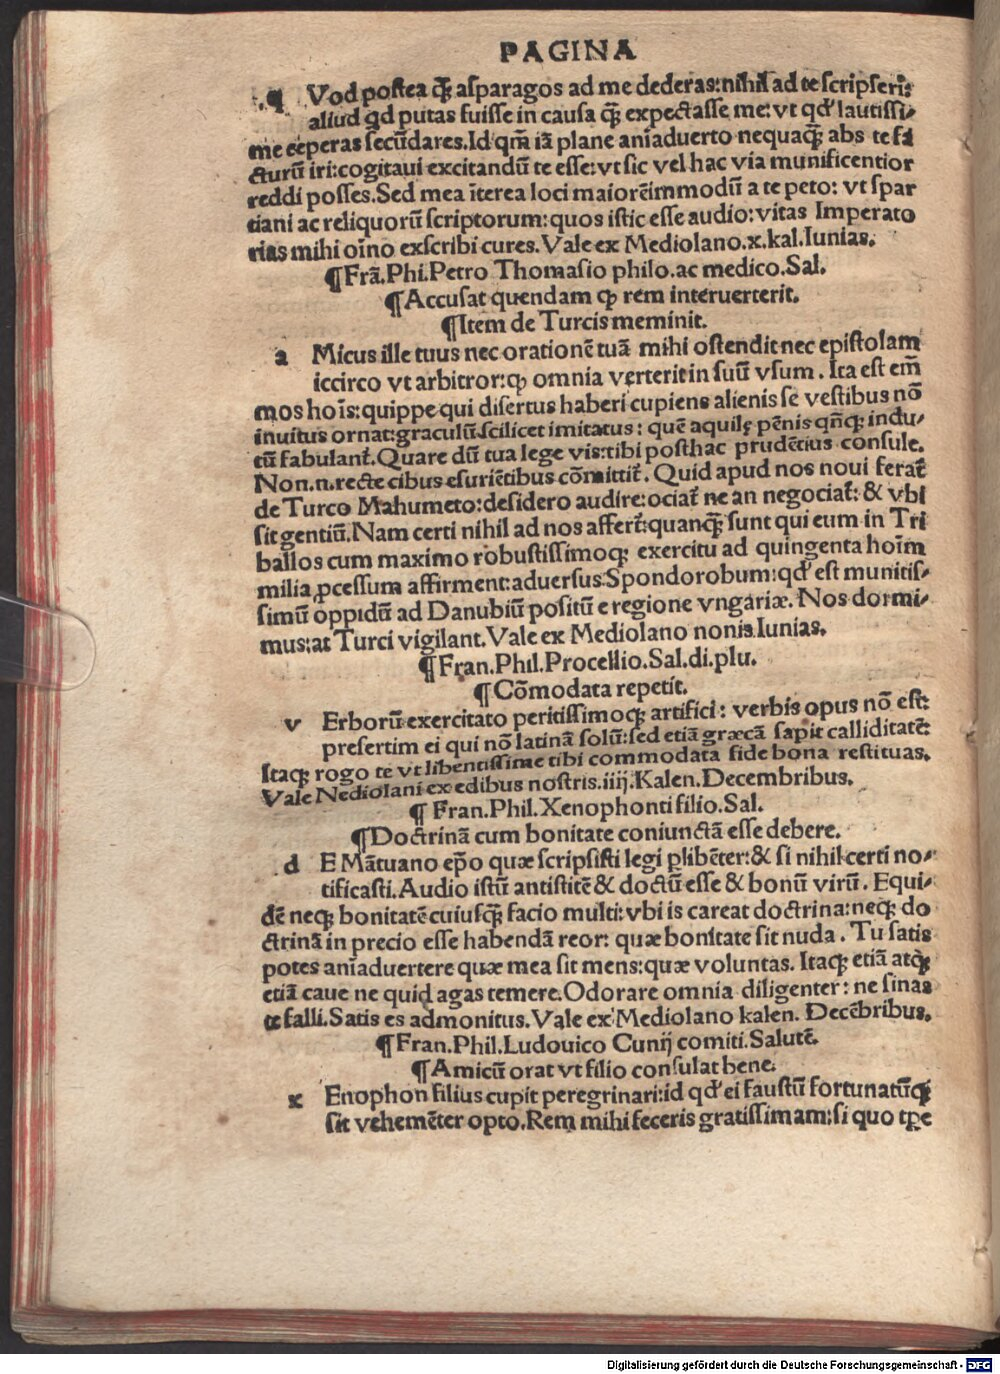 PAGINA
q Vod postea q̃ꝫ asparagos ad me dederas:nihil ad te scripseri:
aliud qd putas fuisse in causa q̃ꝫ expectasse me:vt qd' lautissi⸗
me ceperas secũdares.Id qm̃ iã plane aniaduerto nequaq̃ꝫ abs te fa
cturũ iri:cogitaui excitandũ te esse:vt sic vel hac via munificentior
reddi posses.Sed mea ĩterea loci maiorẽimmodũ a te peto: vt spar
tiani ac reliquorũ scriptorum:quos istic esse audio:vitas Imperato
rias mihi oĩno exscribi cures.Vale ex Mediolano.x.kal.Iunias.
¶Frã.Phi.Petro Thomasio philo.ac medico.Sal.
¶Accusat quendam ꝙ rem interuerterit.
¶Item de Turcis meminit.
a Micus ille tuus nec orationẽ tuã mihi ostendit nec epistolam
iccirco vt arbitror:ꝙ omnia verterit in suũ vsum. Ita est em̃
mos hoĩs:quippe qui disertus haberi cupiens alienis se vestibus nõ
inuitus ornat:graculũ scilicet imitatus: quẽ aquilę pẽnis qñqꝫ indu⸗
tũ fabulant̃.Quare dũ tua lege vis:tibi posthac prudẽtius consule.
Non.n.recte cibus esuriẽtibus cõmittit̃. Quid apud nos noui ferat̃
de Turco Mahumeto:desidero audire:ociat̃ ne an negociat̃: & vbi
sit gentiũ.Nam certi nihil ad nos affert̃:quanq̃ꝫ sunt qui eum in Tri
ballos cum maximo robustissimoqꝫ exercitu ad quingenta hoĩm
milia ꝓcessum affirment:aduersus Spondorobum:qd' est munitis⸗
simũ oppidũ ad Danubiũ positũ e regione vngariæ. Nos dormi⸗
mus:at Turci vigilant.Vale ex Mediolano nonis Iunias.
¶Fran.Phil.Procellio.Sal.di.plu.
¶Cõmodata repetit.
v Erborũ exercitato peritissimoqꝫ artifici: verbis opus nõ est:
presertim ei qui nõ latinã solũ:sed etiã græcã sapit calliditatẽ:
Itaqꝫ rogo te vt libentissime tibi commodata fide bona restituas.
Vale Nediolani ex edibus nostris.iiij.Kalen.Decembribus.
¶ Fran.Phil.Xenophonti filio.Sal.
¶Doctrinã cum bonitate coniunctã esse debere.
d E Mãtuano ep̃o quæ scripsisti legi ꝑlibẽter:& si nihil certi no⸗
tificasti.Audio istũ antistitẽ & doctũ esse & bonũ virũ. Equi⸗
dẽ neqꝫ bonitatẽ cuiusq̃ꝫ facio multi:vbi is careat doctrina:neqꝫ do
ctrinã in precio esse habendã reor: quæ bonitate sit nuda. Tu satis
potes aniaduertere quæ mea sit mens:quæ voluntas. Itaqꝫ etiã atqꝫ
etiã caue ne quid agas temere.Odorare omnia diligenter: ne sinas
te falli.Satis es admonitus.Vale ex Mediolano kalen. Decẽbribus.
¶Fran.Phil.Ludouico Cunij comiti.Salutẽ.
¶Amicũ orat vt filio consulat bene.
x Enophon filius cupit peregrinari:id qd' ei faustũ fortunatũqꝫ
sit vehemẽter opto.Rem mihi feceris gratissimam:si quo tp̃e
Digitalisierung gefördert durch die Deutsche Forschungsgemeinschaft - DFG